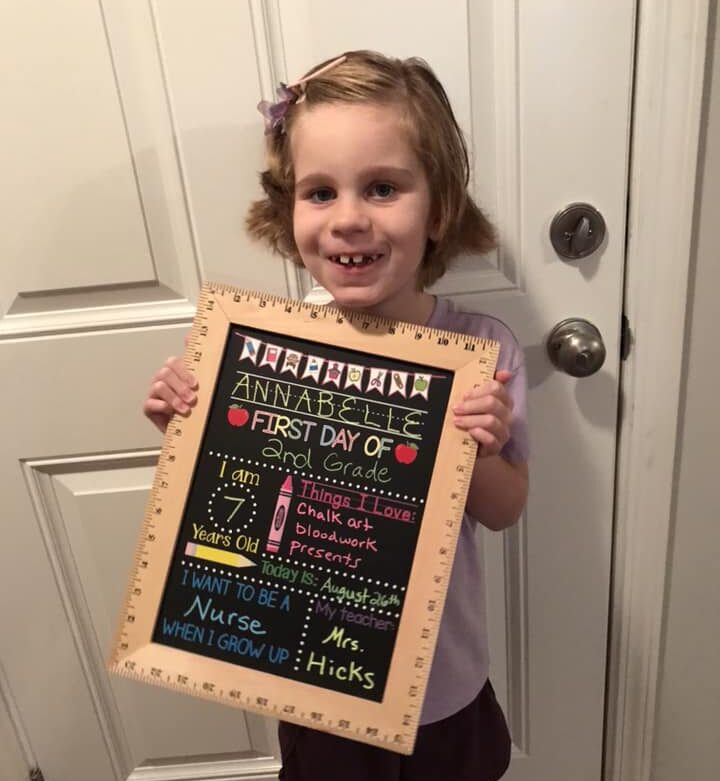 ANNABELLE
FIRST DAY OF
2nd Grade
I am
7
Years Old
Things I Love:
Chalk art
bloodwork
presents
Today is: August 26th
I WANT TO BE A
Nurse
WHEN I GROW UP
My teacher:
Mrs.
Hicks